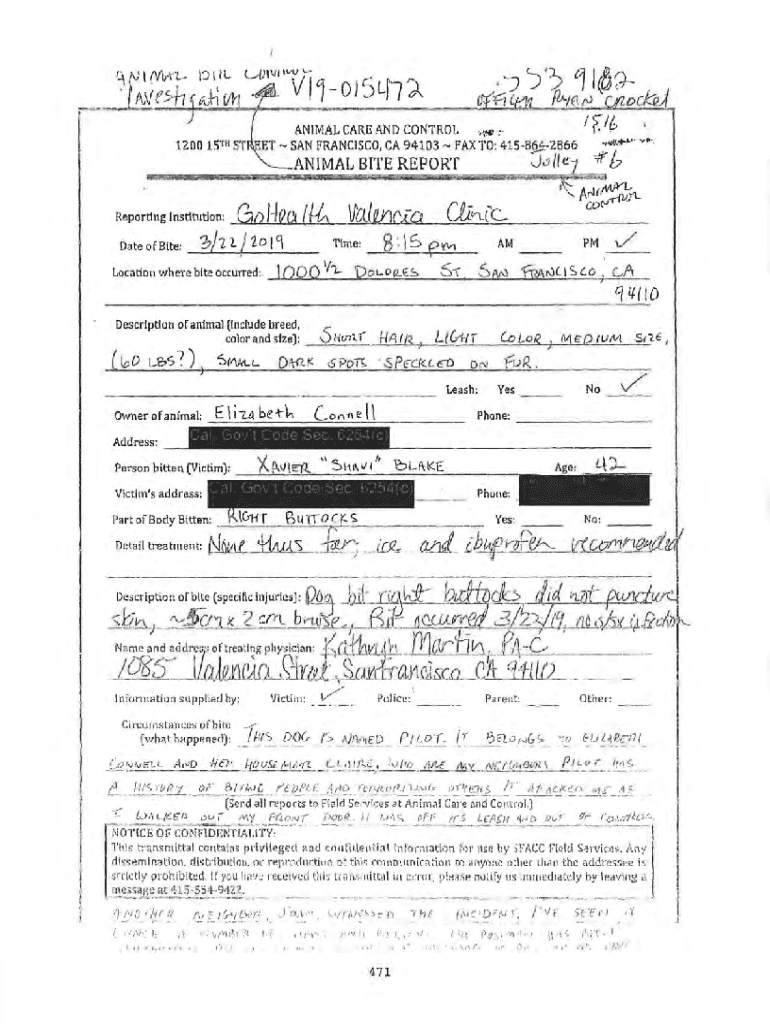 ANIMAL
Investigation V19-015472 553 9182
OFFICER RYAN CROCKET
ANIMAL CARE AND CONTROL 1516
1200 15TH STREET ~ SAN FRANCISCO, CA 94103 ~ FAX TO: 415-864-2866
ANIMAL BITE REPORT Jolley #6
ANIMAL
CONTROL
Reporting Institution: GoHealth Valencia Clinic
Date of Bite: 3/22/2019 Time: 8:15 pm AM PM ✓
Location where bite occurred: 1000 1/2 DOLORES ST. SAN FRANCISCO, CA
94110
Description of animal (include breed,
color and size): SHORT HAIR, LIGHT COLOR, MEDIUM SIZE,
(60 LBS?), SMALL DARK SPOTS SPECKLED ON FUR.
Leash: Yes No ✓
Owner of animal: Elizabeth Connell Phone:
Address: Cal. Gov't Code Sec. 6254(c)
Person bitten (Victim): XAVIER "SHAVI" BLAKE Age: 42
Victim's address: Cal. Gov't Code Sec. 6254(c) Phone:
Part of Body Bitten: RIGHT BUTTOCKS Yes: No:
Detail treatment: None thus far; ice and ibuprofen recommended
Description of bite (specific injuries): Dog bit right buttocks did not puncture
skin, ~5cm x 2 cm bruise., Bit occurred 3/22/19, no s/sx infection
Name and address of treating physician: Kathryn Martin, PA-C
1085 Valencia Street, San Francisco CA 94110
Information supplied by: Victim: ✓ Police: Parent: Other:
Circumstances of bite
(what happened): THIS DOG IS NAMED PILOT. IT BELONGS TO ELIZABETH
CONNELL AND HER HOUSEMATE CLAIRE, WHO ARE MY NEIGHBORS. PILOT HAS
A HISTORY OF BITING PEOPLE AND TERRORIZING OTHERS. IT ATTACKED ME AS
(Send all reports to Field Services at Animal Care and Control.)
I WALKED OUT MY FRONT DOOR. IT WAS OFF ITS LEASH AND OUT OF CONTROL.
NOTICE OF CONFIDENTIALITY:
This transmittal contains privileged and confidential information for use by SFACC Field Services. Any
dissemination, distribution, or reproduction of this communication to anyone other than the addressee is
strictly prohibited. If you have received this transmittal in error, please notify us immediately by leaving a
message at 415-554-9422.
ANOTHER NEIGHBOR, WITNESSED THE INCIDENT. I'VE SEEN IT
471